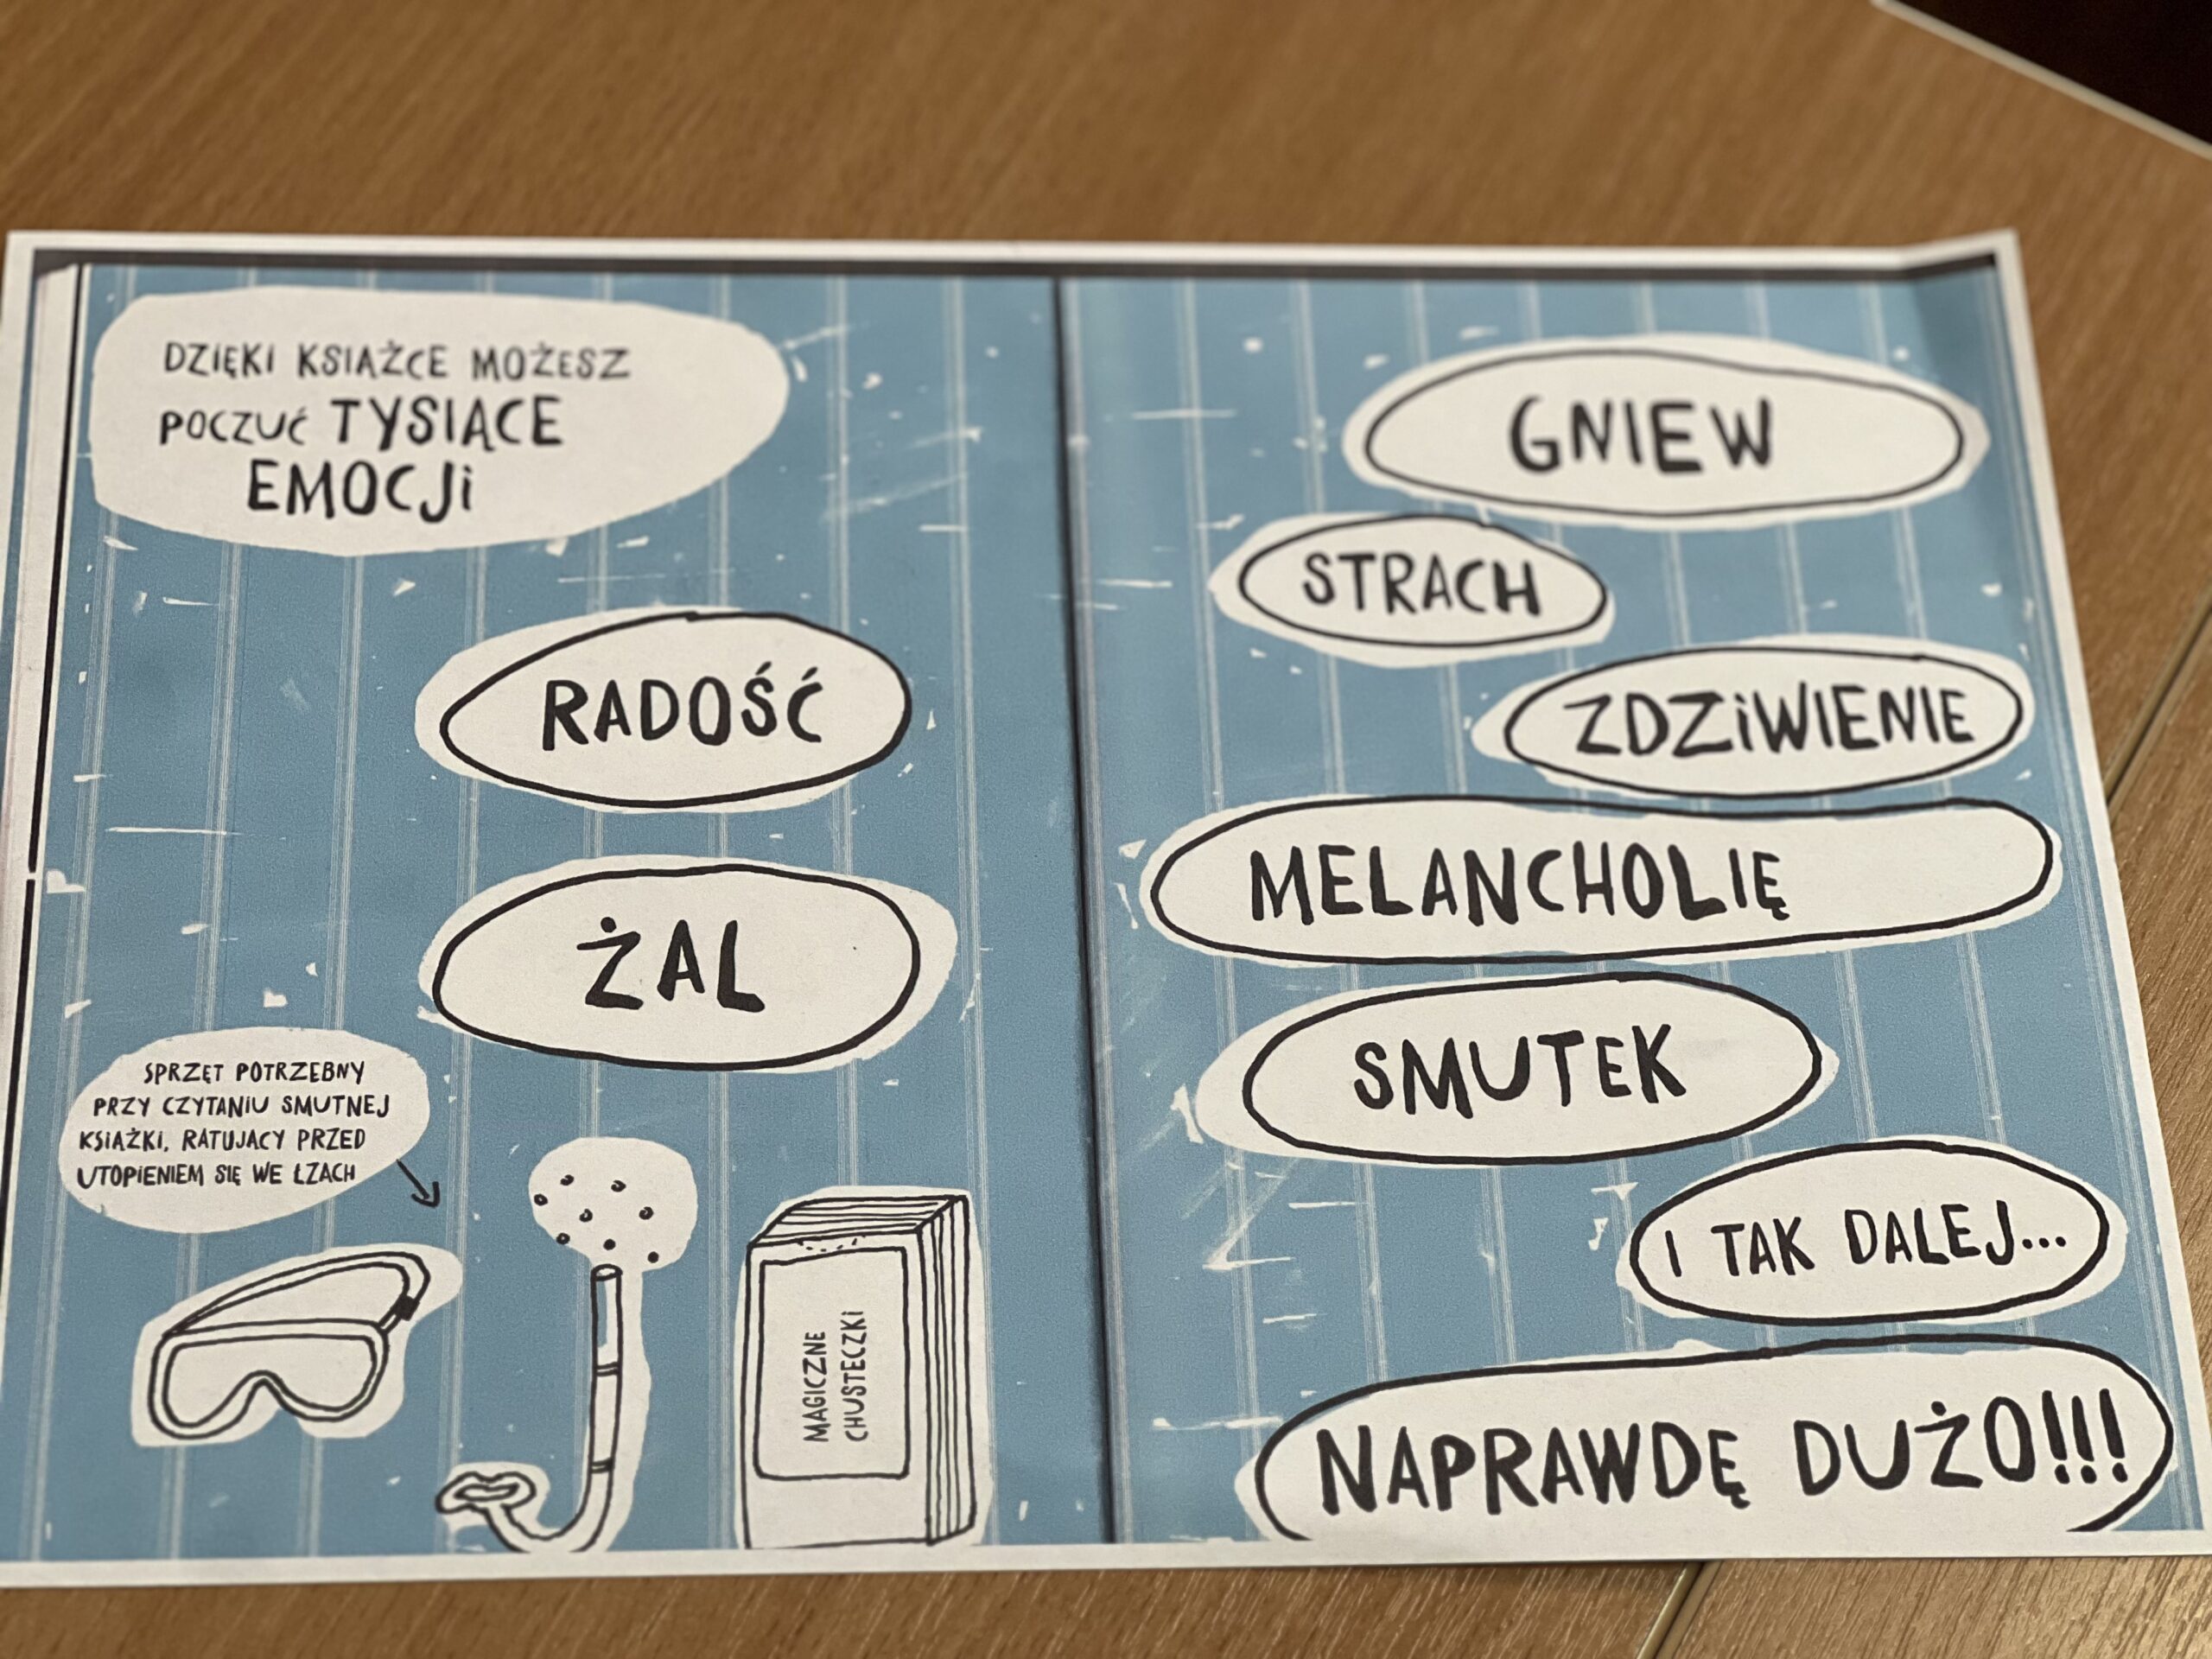 DZIĘKI KSIĄŻCE MOŻESZ
POCZUĆ TYSIĄCE
EMOCJI
RADOŚĆ
ŻAL
SPRZĘT POTRZEBNY
PRZY CZYTANIU SMUTNEJ
KSIĄŻKI, RATUJĄCY PRZED
UTOPIENIEM SIĘ WE ŁZACH
MAGICZNE
CHUSTECZKI
GNIEW
STRACH
ZDZIWIENIE
MELANCHOLIĘ
SMUTEK
I TAK DALEJ...
NAPRAWDĘ DUŻO!!!